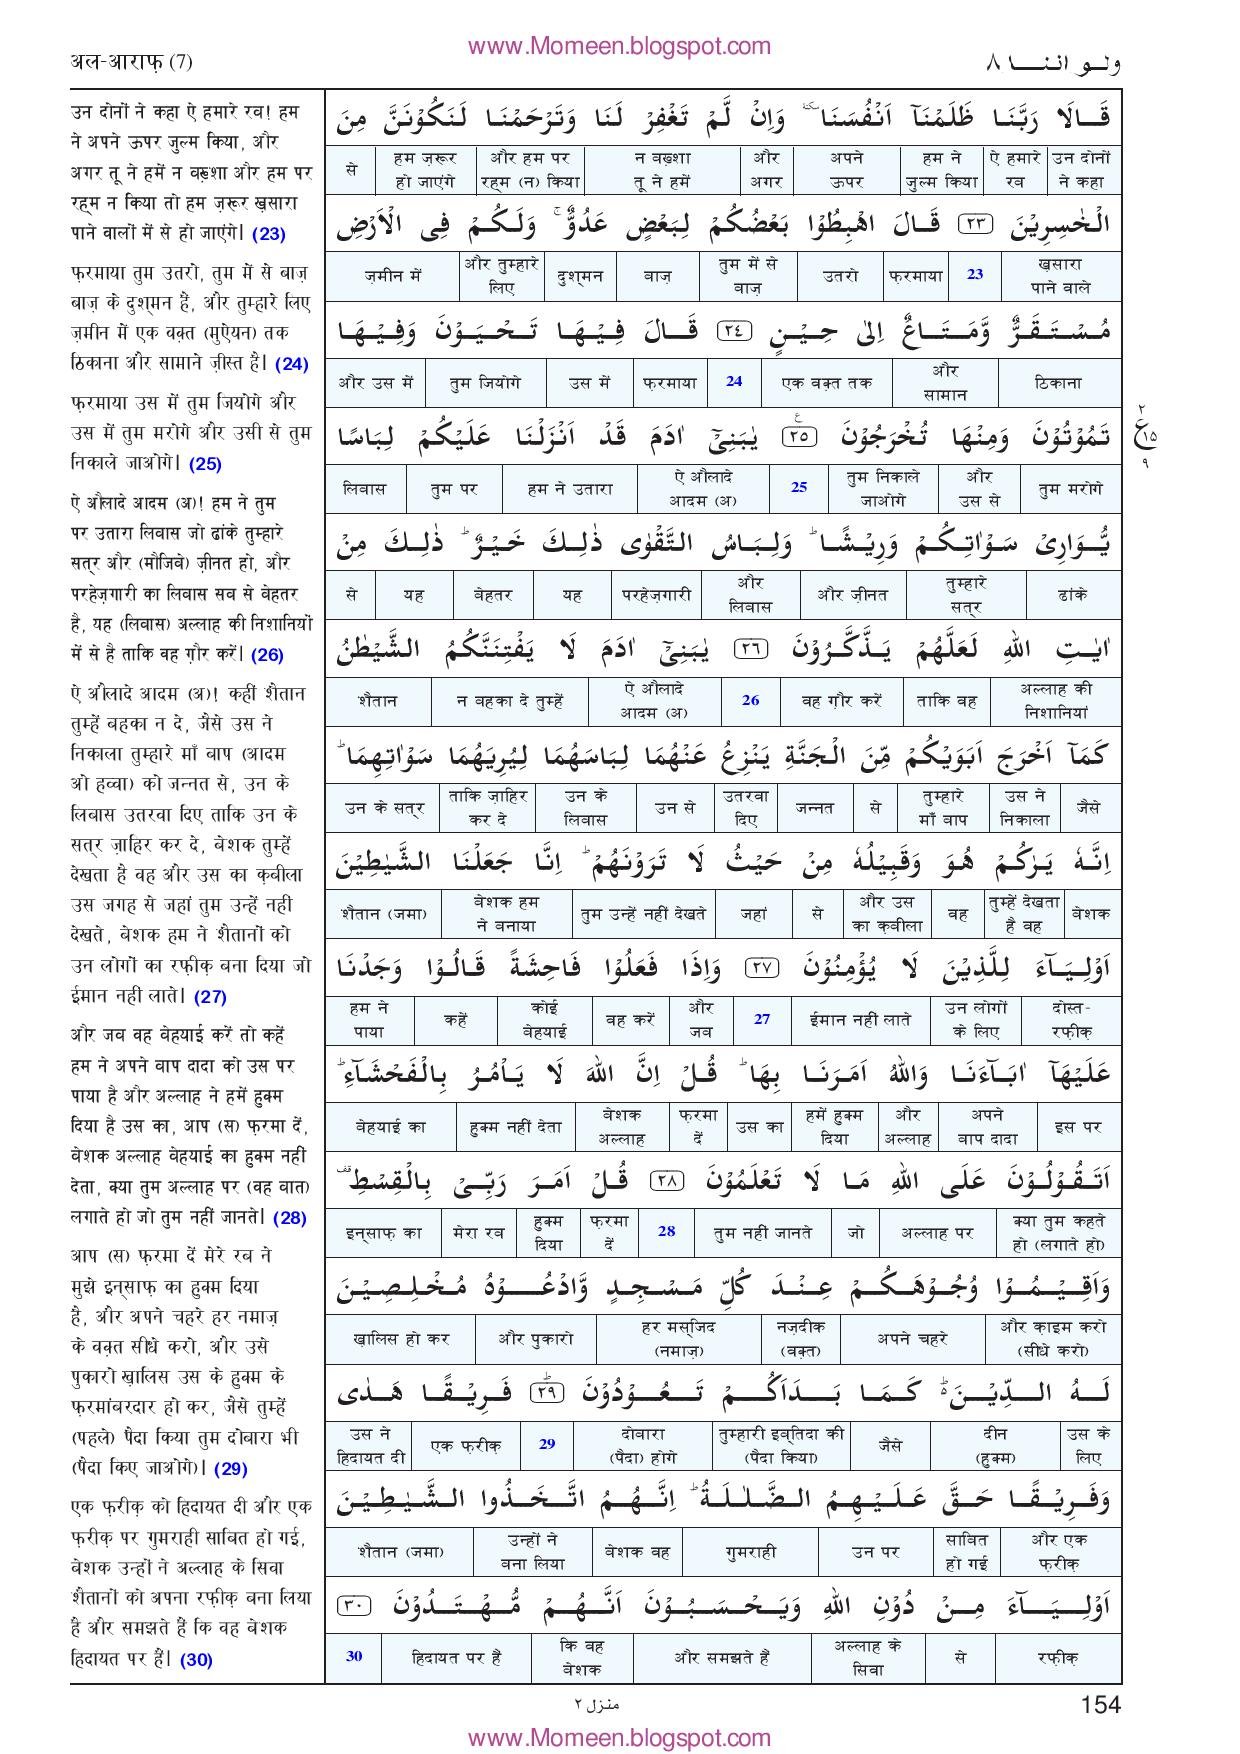 www.Momeen.blogspot.com
अल-आराफ़ (7)
ولــو انـنــــا ٨
उन दोनों ने कहा ऐ हमारे रब! हम
ने अपने ऊपर ज़ुल्म किया, और
अगर तू ने हमें न बख़्शा और हम पर
रह्म न किया तो हम ज़रूर ख़सारा
पाने वालों में से हो जाएंगे। (23)
फ़रमाया तुम उतरो, तुम में से बाज़
बाज़ के दुश्मन हैं, और तुम्हारे लिए
ज़मीन में एक वक़्त (मुऐयन) तक
ठिकाना और सामाने ज़ीस्त है। (24)
फ़रमाया उस में तुम जियोगे और
उस में तुम मरोगे और उसी से तुम
निकाले जाओगे। (25)
ऐ औलादे आदम (अ)! हम ने तुम
पर उतारा लिबास जो ढांके तुम्हारे
सत्र और (मौजिबे) ज़ीनत हो, और
परहेज़गारी का लिबास सब से बेहतर
है, यह (लिबास) अल्लाह की निशानियों
में से है ताकि वह ग़ौर करें। (26)
ऐ औलादे आदम (अ)! कहीं शैतान
तुम्हें बहका न दे, जैसे उस ने
निकाला तुम्हारे माँ बाप (आदम
ओ हव्वा) को जन्नत से, उन के
लिबास उतरवा दिए ताकि उन के
सत्र ज़ाहिर कर दे, बेशक तुम्हें
देखता है वह और उस का क़बीला
उस जगह से जहां तुम उन्हें नहीं
देखते, बेशक हम ने शैतानों को
उन लोगों का रफ़ीक़ बना दिया जो
ईमान नहीं लाते। (27)
और जब वह बेहयाई करें तो कहें
हम ने अपने बाप दादा को उस पर
पाया है और अल्लाह ने हमें हुक्म
दिया है उस का, आप (स) फ़रमा दें,
बेशक अल्लाह बेहयाई का हुक्म नहीं
देता, क्या तुम अल्लाह पर (वह बात)
लगाते हो जो तुम नहीं जानते। (28)
आप (स) फ़रमा दें मेरे रब ने
मुझे इन्साफ़ का हुक्म दिया
है, और अपने चहरे हर नमाज़
के वक़्त सीधे करो, और उसे
पुकारो ख़ालिस उस के हुक्म के
फ़रमांबरदार हो कर, जैसे तुम्हें
(पहले) पैदा किया तुम दोबारा भी
(पैदा किए जाओगे)। (29)
एक फ़रीक़ को हिदायत दी और एक
फ़रीक़ पर गुमराही साबित हो गई,
बेशक उन्हों ने अल्लाह के सिवा
शैतानों को अपना रफ़ीक़ बना लिया
है और समझते हैं कि वह बेशक
हिदायत पर हैं। (30)
قَـالَا رَبَّـنَـا ظَلَمْنَاۤ اَنْفُسَنَا ٚ وَاِنْ لَّمْ تَغْفِرْ لَنَا وَتَرْحَمْنَا لَنَكُوْنَنَّ مِنَ
उन दोनों ने कहा | ऐ हमारे रब | हम ने ज़ुल्म किया | अपने ऊपर | और अगर | न बख़्शा तू ने हमें | और हम पर रह्म (न) किया | हम ज़रूर हो जाएंगे | से
الْخٰسِرِيْنَ ٢٣ قَـالَ اهْبِطُوْا بَعْضُكُمْ لِبَعْضٍ عَدُوٌّ ۚ وَلَـكُـمْ فِى الْاَرْضِ
ख़सारा पाने वाले | 23 | फ़रमाया | उतरो | तुम में से बाज़ | बाज़ | दुश्मन | और तुम्हारे लिए | ज़मीन में
مُسْتَقَرٌّ وَّمَتَاعٌ اِلٰى حِيْنٍ ٢٤ قَـالَ فِيْهَا تَحْيَوْنَ وَفِيْهَا
ठिकाना | और सामान | एक वक़्त तक | 24 | फ़रमाया | उस में | तुम जियोगे | और उस में
تَمُوْتُوْنَ وَمِنْهَا تُخْرَجُوْنَ ٢٥ ع يٰبَنِىْۤ اٰدَمَ قَدْ اَنْزَلْنَا عَلَيْكُمْ لِبَاسًا
२ ع ١٥ ٩
तुम मरोगे | और उस से | तुम निकाले जाओगे | 25 | ऐ औलादे आदम (अ) | हम ने उतारा | तुम पर | लिबास
يُّوَارِىْ سَوْاٰتِكُمْ وَرِيْشًا ؕ وَلِبَاسُ التَّقْوٰى ذٰلِكَ خَيْرٌ ؕ ذٰلِكَ مِنْ
ढांके | तुम्हारे सत्र | और ज़ीनत | और लिबास | परहेज़गारी | यह | बेहतर | यह | से
اٰيٰتِ اللّٰهِ لَعَلَّهُمْ يَذَّكَّرُوْنَ ٢٦ يٰبَنِىْۤ اٰدَمَ لَا يَفْتِنَنَّكُمُ الشَّيْطٰنُ
अल्लाह की निशानियां | ताकि वह | वह ग़ौर करें | 26 | ऐ औलादे आदम (अ) | न बहका दे तुम्हें | शैतान
كَمَاۤ اَخْرَجَ اَبَوَيْكُمْ مِّنَ الْجَنَّةِ يَنْزِعُ عَنْهُمَا لِبَاسَهُمَا لِيُرِيَهُمَا سَوْاٰتِهِمَا ؕ
जैसे | उस ने निकाला | तुम्हारे माँ बाप | से | जन्नत | उतरवा दिए | उन से | उन के लिबास | ताकि ज़ाहिर कर दे | उन के सत्र
اِنَّهٗ يَرٰىكُمْ هُوَ وَقَبِيْلُهٗ مِنْ حَيْثُ لَا تَرَوْنَهُمْ ؕ اِنَّا جَعَلْنَا الشَّيٰطِيْنَ
बेशक | तुम्हें देखता है वह | वह | और उस का क़बीला | से | जहां | तुम उन्हें नहीं देखते | बेशक हम ने बनाया | शैतान (जमा)
اَوْلِيَآءَ لِلَّذِيْنَ لَا يُؤْمِنُوْنَ ٢٧ وَاِذَا فَعَلُوْا فَاحِشَةً قَالُوْا وَجَدْنَا
दोस्त-रफ़ीक़ | उन लोगों के लिए | ईमान नहीं लाते | 27 | और जब | वह करें | कोई बेहयाई | कहें | हम ने पाया
عَلَيْهَاۤ اٰبَآءَنَا وَاللّٰهُ اَمَرَنَا بِهَا ؕ قُلْ اِنَّ اللّٰهَ لَا يَاْمُرُ بِالْفَحْشَآءِ ؕ
इस पर | अपने बाप दादा | और अल्लाह | हमें हुक्म दिया | उस का | फ़रमा दें | बेशक अल्लाह | हुक्म नहीं देता | बेहयाई का
اَتَقُوْلُوْنَ عَلَى اللّٰهِ مَا لَا تَعْلَمُوْنَ ٢٨ قُلْ اَمَرَ رَبِّىْ بِالْقِسْطِ ۟
क्या तुम कहते हो (लगाते हो) | अल्लाह पर | जो | तुम नहीं जानते | 28 | फ़रमा दें | हुक्म दिया | मेरा रब | इन्साफ़ का
وَاَقِيْمُوْا وُجُوْهَكُمْ عِنْدَ كُلِّ مَسْجِدٍ وَّادْعُوْهُ مُخْلِصِيْنَ
और क़ाइम करो (सीधे करो) | अपने चहरे | नज़दीक (वक़्त) | हर मस्जिद (नमाज़) | और पुकारो | ख़ालिस हो कर
لَـهُ الـدِّيْـنَ ۬ؕ كَـمَـا بَـدَاَكُـمْ تَـعُـوْدُوْنَ ٢٩ ؕ فَرِيْقًا هَدٰى
उस के लिए | दीन (हुक्म) | जैसे | तुम्हारी इब्तिदा की (पैदा किया) | दोबारा (पैदा) होगे | 29 | एक फ़रीक़ | उस ने हिदायत दी
وَفَرِيْقًا حَقَّ عَلَيْهِمُ الضَّلٰلَةُ ؕ اِنَّهُمُ اتَّخَذُوا الشَّيٰطِيْنَ
और एक फ़रीक़ | साबित हो गई | उन पर | गुमराही | बेशक वह | उन्हों ने बना लिया | शैतान (जमा)
اَوْلِيَآءَ مِنْ دُوْنِ اللّٰهِ وَيَحْسَبُوْنَ اَنَّهُمْ مُّهْتَدُوْنَ ٣٠
रफ़ीक़ | से | अल्लाह के सिवा | और समझते हैं | कि वह बेशक | हिदायत पर हैं | 30
منزل ٢
154
www.Momeen.blogspot.com